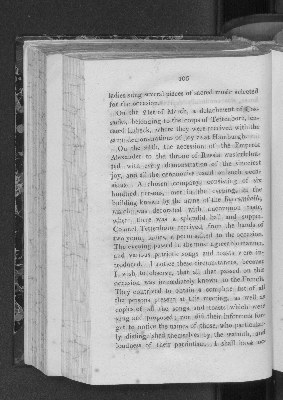 106
ladies sung several pieces of sacred music selected
for the occasion.
On the 21st of March, a detachment of Cos-
sacks, belonging to the corps of Tettenborn, en-
tered Lubeck, where they were received with the
same demonstrations of joy as at Hamburgh.
On the 24th, the accession of the Emperor
Alexander to the throne of Russia was celebra-
ted with every demonstration of the sincerest
joy, and all the ceremonies used on such occa-
sions. A chosen company, consisting of six
hundred persons, met in the evening, in the
building known by the name of the
which was decorated with uncommon taste,
where there was a splendid ball and supper.
Colonel Tettenborn received, from the hands of
two young ladies, a poem suited to the occasion.
The evening passed in the most agreeable manner,
and various patriotic songs and toasts were in-
troduced. I notice these circumstances, because
I wish to observe, that all that passed on this
occasion was immediately known to the French.
They contrived to obtain a complete list of all
the persons present at this meeting, as well as
copies of all the songs and toasts which were
sung and proposed; nor did their informers for-
get to notice the names of those, who particular-
ly distinguished themselves by the warmth, and
loudness of their patriotism. I shall have oc-